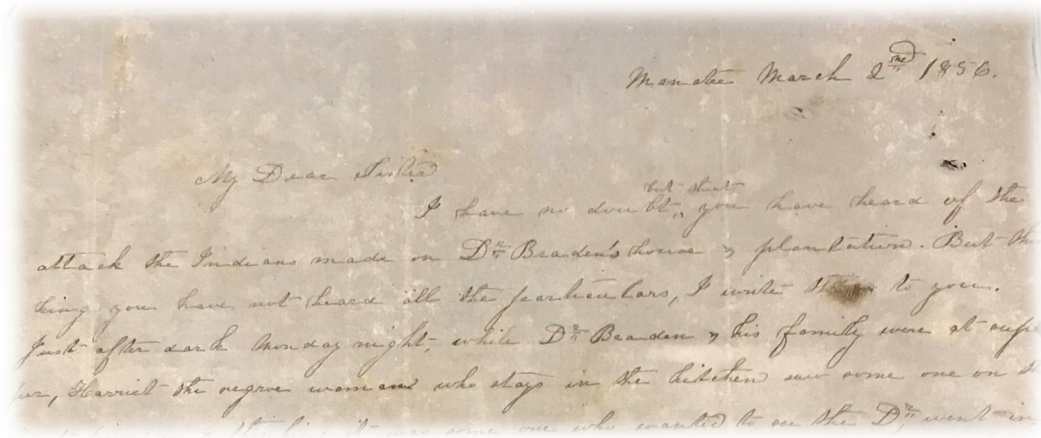 Manatee March 2nd 1856.
My Dear Sister
but that
I have no doubt, you have heard of the
attack the Indians made on Dr Braden's house & plantation. But thin
king you have not heard all the particulars, I write to you.
Just after dark Monday night, while Dr Braden & his family were at supp
er, Harriet the negroe woman who stays in the kitchen saw some one on
it was some one who wanted to see the Dr, went in